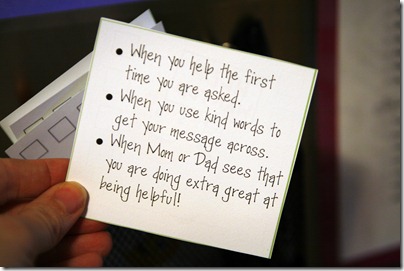 • When you help the first
time you are asked.
• When you use kind words to
get your message across.
• When Mom or Dad sees that
you are doing extra great at
being helpful!